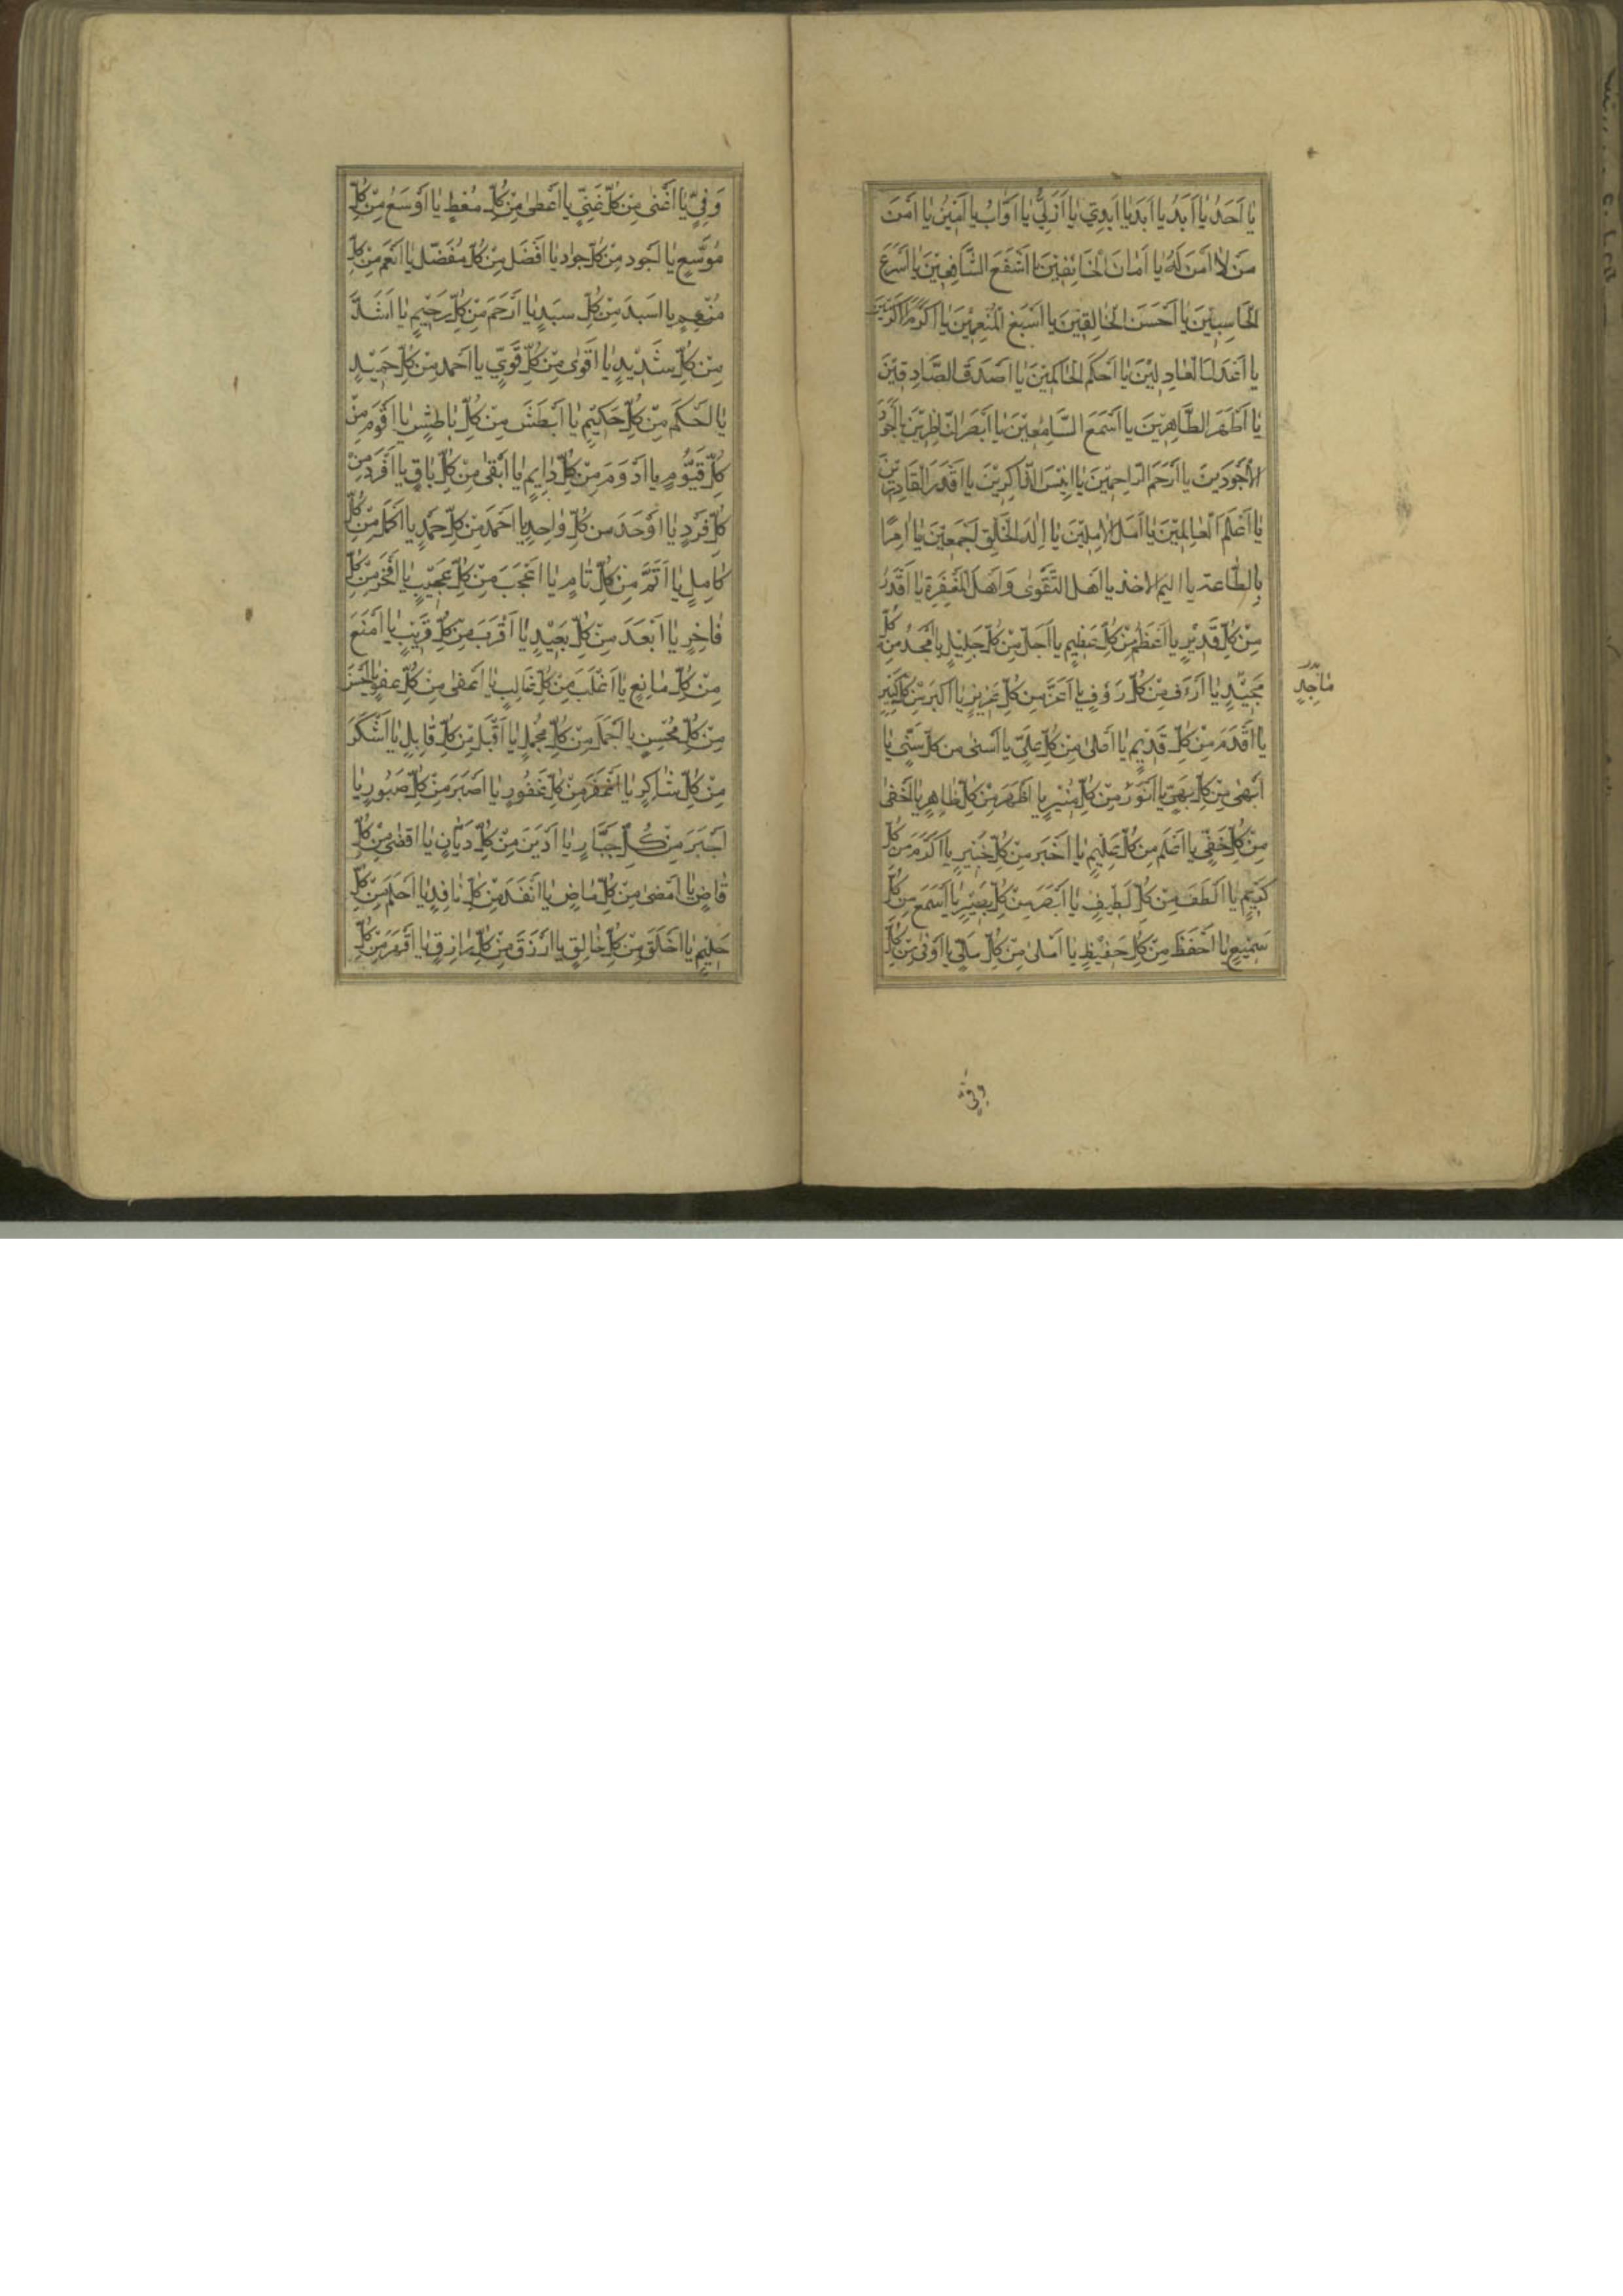 يَا اَحَدُ يَا اَبَدُ يَا اَبَدَ يَا اَبَدِيُّ يَا اَزَلِيُّ يَا اَوَّابُ يَا اَمِيْنُ يَا اَمَنَ
مَنْ لَا اَمَنَ لَهُ يَا اَمَانَ الْخَائِفِيْنَ يَا اَشْفَعَ الشَّافِعِيْنَ يَا اَسْرَعَ
الْحَاسِبِيْنَ يَا اَحْسَنَ الْخَالِقِيْنَ يَا اَسْبَغَ الْمُنْعِمِيْنَ يَا اَكْرَمَ الْاَكْرَمِيْنَ
يَا اَعْدَلَ الْعَادِلِيْنَ يَا اَحْكَمَ الْحَاكِمِيْنَ يَا اَصْدَقَ الصَّادِقِيْنَ
يَا اَطْهَرَ الطَّاهِرِيْنَ يَا اَسْمَعَ السَّامِعِيْنَ يَا اَبْصَرَ النَّاظِرِيْنَ يَا اَجْوَدَ
الْاَجْوَدِيْنَ يَا اَرْحَمَ الرَّاحِمِيْنَ يَا اَنِيْسَ الذَّاكِرِيْنَ يَا اَقْدَرَ الْقَادِرِيْنَ
يَا اَعْلَمَ الْعَالِمِيْنَ يَا اَمَلَ الْاٰمِلِيْنَ يَا اِلٰهَ الْخَلْقِ اَجْمَعِيْنَ يَا اٰمِرًا
بِالطَّاعَةِ يَا اَلِيْمَ الْاَخْذِ يَا اَهْلَ التَّقْوٰى وَاَهْلَ الْمَغْفِرَةِ يَا اَقْدَرُ
مِنْ كُلِّ قَدِيْرٍ يَا اَعْظَمُ مِنْ كُلِّ عَظِيْمٍ يَا اَجَلُّ مِنْ كُلِّ جَلِيْلٍ يَا اَمْجَدُ مِنْ كُلِّ
مَجِيْدٍ يَا اَرْءَفُ مِنْ كُلِّ رَؤُفٍ يَا اَعَزَّ مِنْ كُلِّ عَزِيْزٍ يَا اَكْبَرَ مِنْ كُلِّ كَبِيْرٍ
مَاجِدٍ
يَا اَقْدَمَ مِنْ كُلِّ قَدِيْمٍ يَا اَعْلٰى مِنْ كُلِّ عَلِيٍّ يَا اَسْنٰى مِنْ كُلِّ سَنِيٍّ يَا
اَبْهٰى مِنْ كُلِّ بَهِيٍّ يَا اَنْوَرُ مِنْ كُلِّ مُنِيْرٍ يَا اَظْهَرَ مِنْ كُلِّ ظَاهِرٍ يَا اَخْفٰى
مِنْ كُلِّ خَفِيٍّ يَا اَعْلَمَ مِنْ كُلِّ عَلِيْمٍ يَا اَخْبَرَ مِنْ كُلِّ خَبِيْرٍ يَا اَكْرَمَ مِنْ كُلِّ
كَرِيْمٍ يَا اَلْطَفَ مِنْ كُلِّ لَطِيْفٍ يَا اَبْصَرَ مِنْ كُلِّ بَصِيْرٍ يَا اَسْمَعَ مِنْ كُلِّ
سَمِيْعٍ يَا اَحْفَظَ مِنْ كُلِّ حَفِيْظٍ يَا اَمْلٰى مِنْ كُلِّ مَلِيٍّ يَا اَوْفٰى مِنْ كُلِّ
وَفِيٍّ
وَفِيٍّ يَا اَغْنٰى مِنْ كُلِّ غَنِيٍّ يَا اَعْطٰى مِنْ كُلِّ مُعْطٍ يَا اَوْسَعُ مِنْ كُلِّ
مُوَسِّعٍ يَا اَجْوَد مِنْ كُلِّ جَوَاد يَا اَفْضَلَ مِنْ كُلِّ مُفَضِّلٍ يَا اَنْعَمَ مِنْ كُلِّ
مُنْعِمٍ يَا اَسْيَدَ مِنْ كُلِّ سَيِّدٍ يَا اَرْحَمَ مِنْ كُلِّ رَحِيْمٍ يَا اَشَدَّ
مِنْ كُلِّ شَدِيْدٍ يَا اَقْوٰى مِنْ كُلِّ قَوِيٍّ يَا اَحْمَد مِنْ كُلِّ حَمِيْدٍ
يَا اَحْكَمَ مِنْ كُلِّ حَكِيْمٍ يَا اَبْطَشَ مِنْ كُلِّ بَاطِشٍ يَا اَقْوَمَ مِنْ
كُلِّ قَيُّوْمٍ يَا اَدْوَمَ مِنْ كُلِّ دَايِمٍ يَا اَبْقٰى مِنْ كُلِّ بَاقٍ يَا اَفْرَدَ مِنْ
كُلِّ فَرْدٍ يَا اَوْحَدَ مِنْ كُلِّ وَاحِدٍ يَا اَحْمَدَ مِنْ كُلِّ حَمْدٍ يَا اَكْمَلَ مِنْ كُلِّ
كَامِلٍ يَا اَتَمَّ مِنْ كُلِّ تَامٍ يَا اَعْجَبَ مِنْ كُلِّ عَجِيْبٍ يَا اَفْخَرَ مِنْ كُلِّ
فَاخِرٍ يَا اَبْعَدَ مِنْ كُلِّ بَعِيْدٍ يَا اَقْرَبَ مِنْ كُلِّ قَرِيْبٍ يَا اَمْنَعَ
مِنْ كُلِّ مَانِعٍ يَا اَغْلَبَ مِنْ كُلِّ غَالِبٍ يَا اَعْفٰى مِنْ كُلِّ عَفُوٍّ يَا اَحْسَنَ
مِنْ كُلِّ مُحْسِنٍ يَا اَجْمَلَ مِنْ كُلِّ مُجْمِلٍ يَا اَقْبَلَ مِنْ كُلِّ قَابِلٍ يَا اَشْكَرَ
مِنْ كُلِّ شَاكِرٍ يَا اَغْفَرَ مِنْ كُلِّ غَفُوْرٍ يَا اَصْبَرَ مِنْ كُلِّ صَبُوْرٍ يَا
اَجْبَرَ مِنْ كُلِّ جَبَّارٍ يَا اَدْيَنَ مِنْ كُلِّ دَيَّانٍ يَا اَقْضٰى مِنْ كُلِّ
قَاضٍ يَا اَمْضٰى مِنْ كُلِّ مَاضٍ يَا اَنْفَدَ مِنْ كُلِّ نَافِدٍ يَا اَحْلَمَ مِنْ كُلِّ
حَلِيْمٍ يَا اَخْلَقَ مِنْ كُلِّ خَالِقٍ يَا اَرْزَقَ مِنْ كُلِّ رَازِقٍ يَا اَقْهَرَ مِنْ كُلِّ